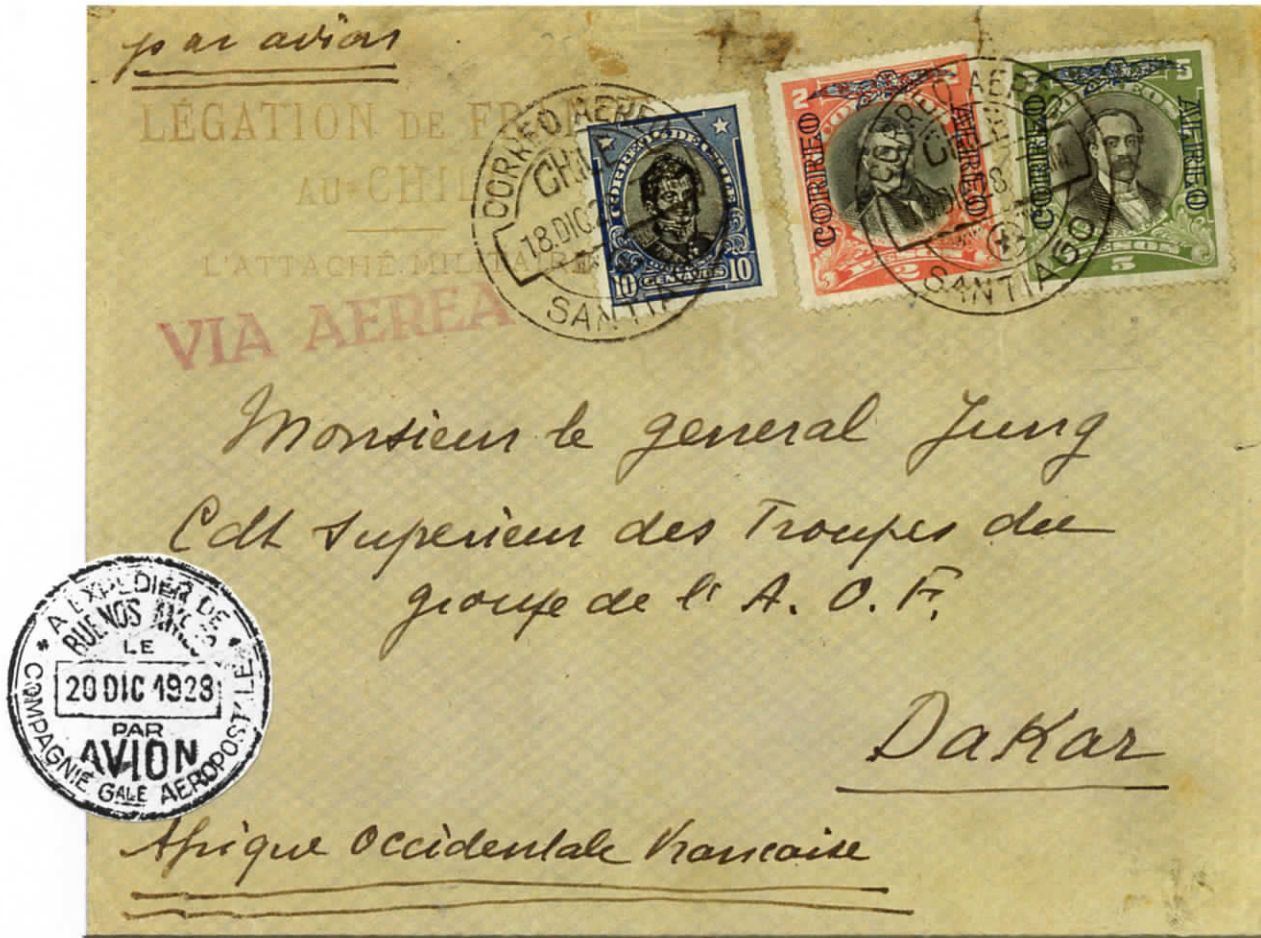 par avion
LÉGATION DE FR
AU CHIL
L'ATTACHÉ MILITAIRE
VIA AEREA
CORREO AERE
CHILE
18.DIC.2
SANTIA
CORREOS DE CHILE
10 CENTAVOS 10
2 2
CORREO AEREO
PESOS
2
CORREO AEREO
SANTIAGO
5 5
CORREO AEREO
PESOS
5
Monsieur le general Jung
Cdt Superieur des Troupes du
groupe de l'A. O. F.
Dakar
Afrique Occidentale Francaise
A EXPEDIER DE
BUENOS AIRES
LE
20 DIC 1928
PAR
AVION
COMPAGNIE GALE AEROPOSTALE